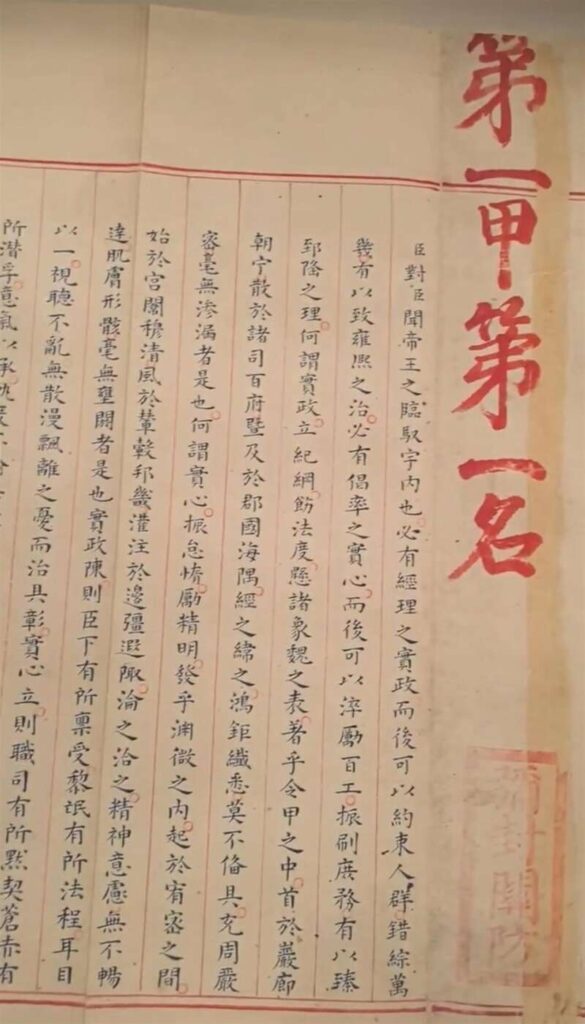 第一甲第一名
彌封關防
臣對臣聞帝王之臨馭宇内也必有經理之實政而後可以約束人群錯綜萬
幾有以致雍熙之治必有倡率之實心而後可以淬勵百工振刷庶務有以臻
郅隆之理何謂實政立紀綱飭法度懸諸象魏之表著乎令甲之中首於巖廊
朝宁散於諸司百府暨及於郡國海隅經之緯之鴻鉅纖悉莫不僃具充周嚴
密毫無滲漏者是也何謂實心振怠惰勵精明發乎淵微之内起於宥密之間
始於宫闈穆清風於輦轂邦畿灌注於邊疆遐陬淪之洽之精神意慮無不暢
達肌膚形骸毫無壅閼者是也實政陳則臣下有所禀受黎氓有所法程耳目
以一視聽不亂無散漫飄離之憂而治具彰實心立則職司有所默契蒼赤有
所潛孚意氣以承